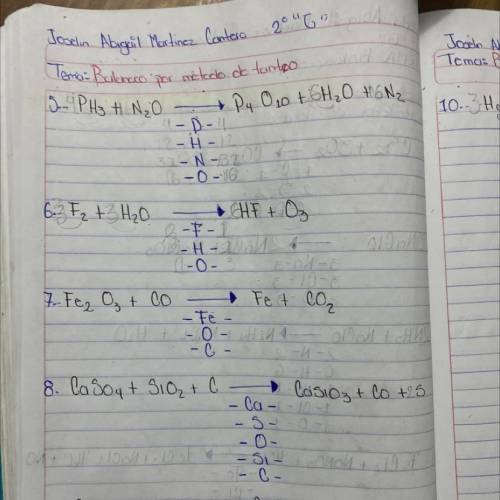 Joselin Abigail Martinez Cantero 2° "G"
Tema: Balanceo por método de tanteo
5.- 4PH3 + N2O → P4O10 + 6H2O + 16N2
4 - P - 4
12 - H - 12
32 - N - 32
16 - O - 16
6.- 3F2 + 3H2O → 6HF + O3
2 - F - 1
2 - H - 1
- O - 3
7.- Fe2O3 + CO → Fe + CO2
- Fe -
- O -
- C -
8.- CaSO4 + SiO2 + C → CaSiO3 + CO + 2S
- Ca -
- S -
- O -
- Si -
- C -
Joselin A
Tema: B
10.- 3H